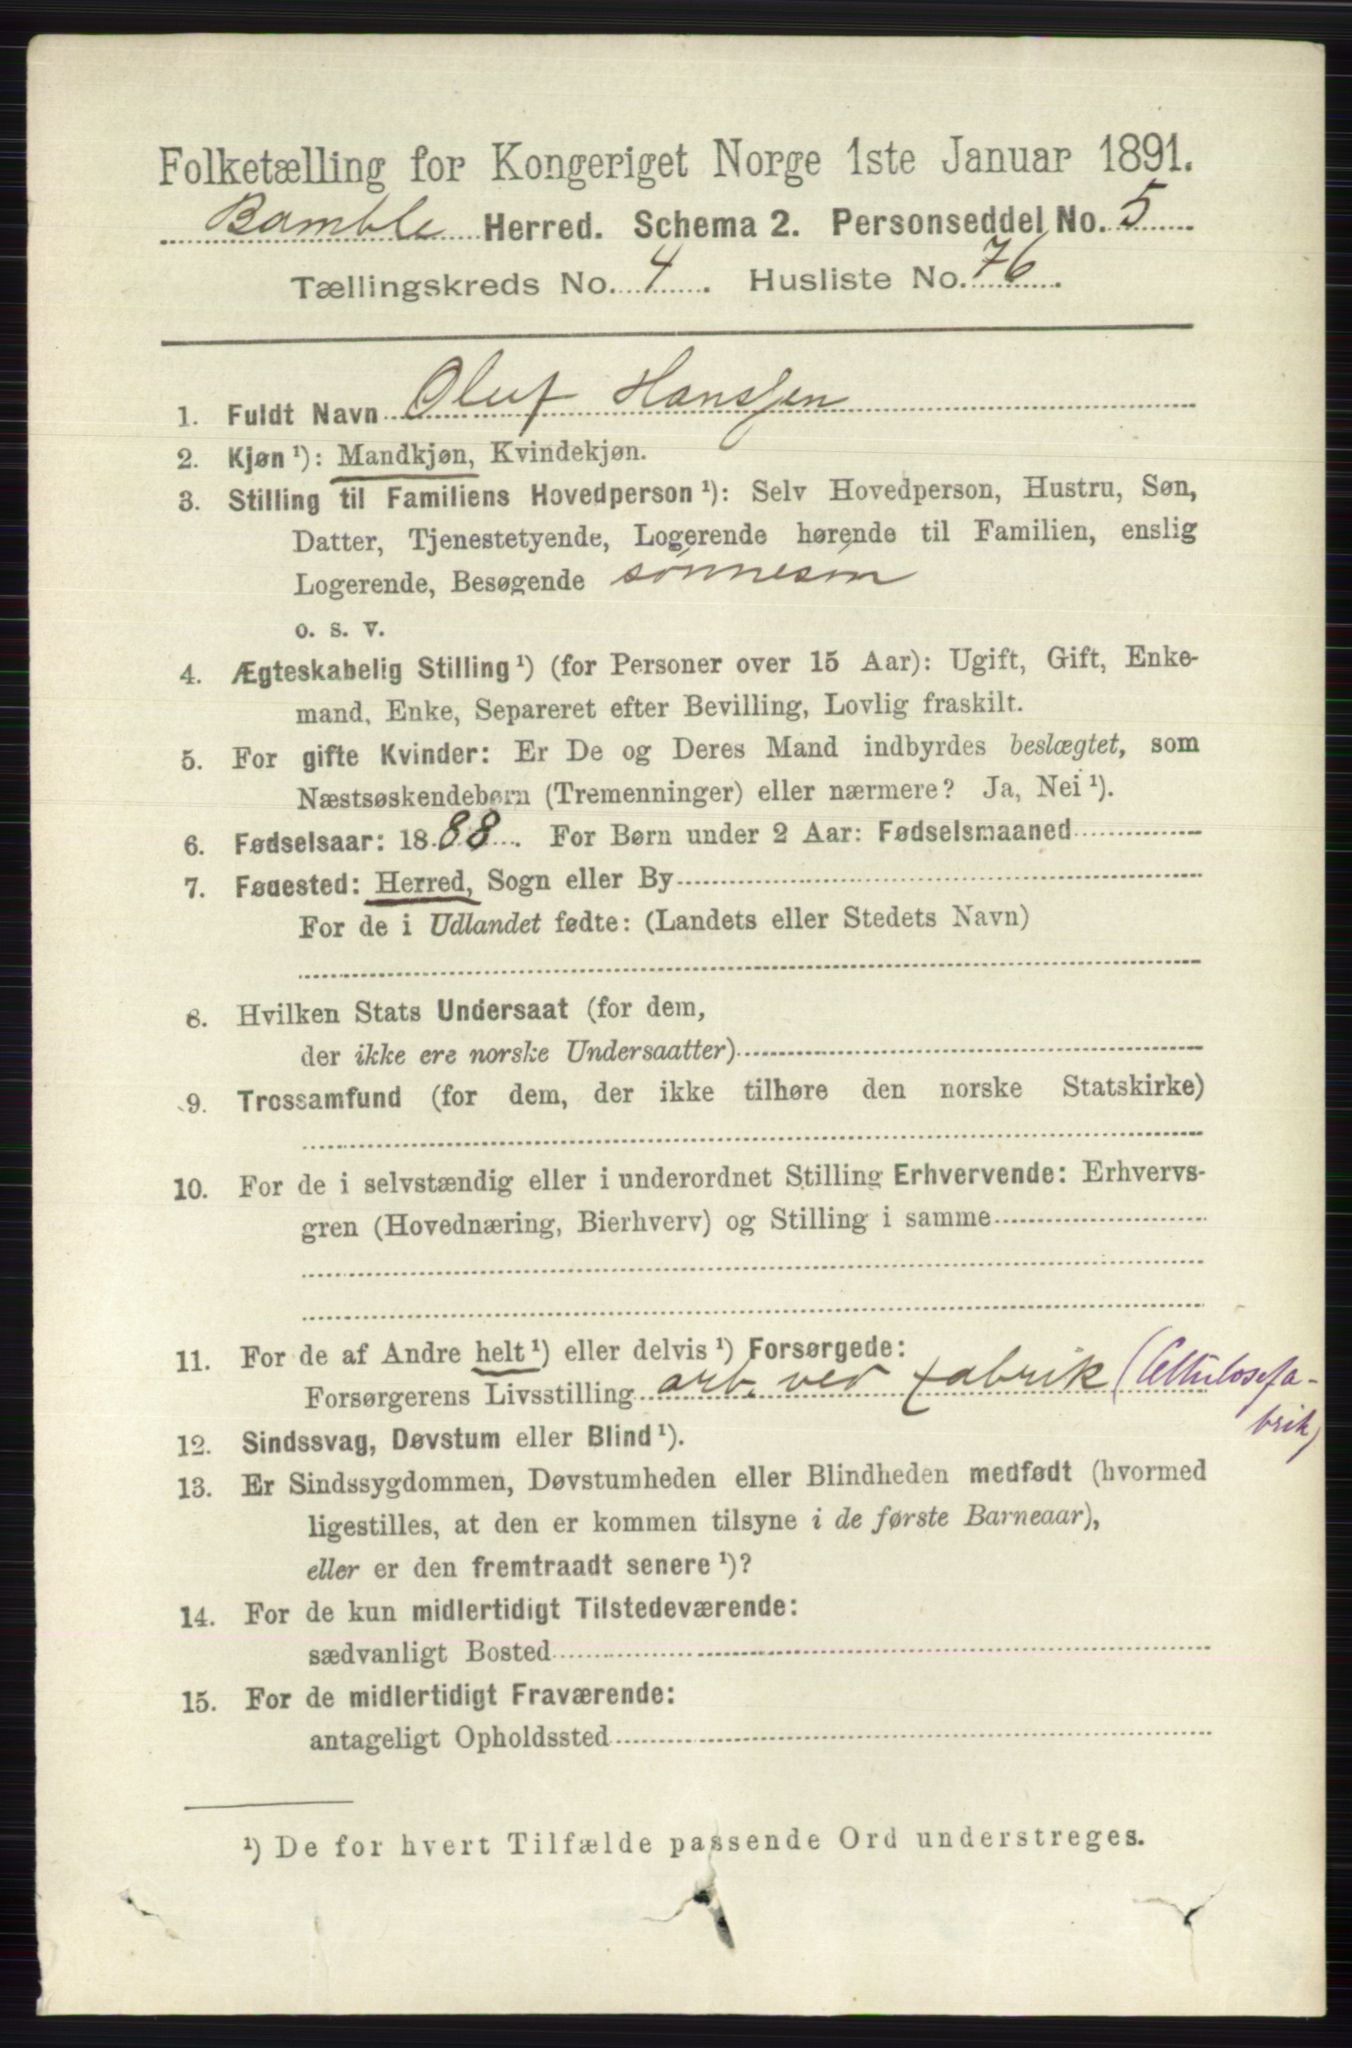 Folketælling for Kongeriget Norge 1ste Januar 1891.
Bamble Herred. Schema 2. Personseddel No. 5
Tællingskreds No. 4. Husliste No. 76.
1. Fuldt Navn Oluf Hanssen
2. Kjøn ¹): Mandkjøn, Kvindekjøn.
3. Stilling til Familiens Hovedperson ¹): Selv Hovedperson, Hustru, Søn,
Datter, Tjenestetyende, Logerende hørende til Familien, enslig
Logerende, Besøgende sønnesøn
o. s. v.
4. Ægteskabelig Stilling ¹) (for Personer over 15 Aar): Ugift, Gift, Enke-
mand, Enke, Separeret efter Bevilling, Lovlig fraskilt.
5. For gifte Kvinder: Er De og Deres Mand indbyrdes beslægtet, som
Næstsøskendebørn (Tremenninger) eller nærmere? Ja, Nei ¹).
6. Fødselsaar: 1888. For Børn under 2 Aar: Fødselsmaaned
7. Fødested: Herred, Sogn eller By
For de i Udlandet fødte: (Landets eller Stedets Navn)
8. Hvilken Stats Undersaat (for dem,
der ikke ere norske Undersaatter)
9. Trossamfund (for dem, der ikke tilhøre den norske Statskirke)
10. For de i selvstændig eller i underordnet Stilling Erhvervende: Erhvervs-
gren (Hovednæring, Bierhverv) og Stilling i samme
11. For de af Andre helt ¹) eller delvis ¹) Forsørgede:
Forsørgerens Livsstilling arb. ved fabrik (Cellulosefa-
brik)
12. Sindssvag, Døvstum eller Blind ¹).
13. Er Sindssygdommen, Døvstumheden eller Blindheden medfødt (hvormed
ligestilles, at den er kommen tilsyne i de første Barneaar),
eller er den fremtraadt senere ¹)?
14. For de kun midlertidigt Tilstedeværende:
sædvanligt Bosted
15. For de midlertidigt Fraværende:
antageligt Opholdssted
¹) De for hvert Tilfælde passende Ord understreges.